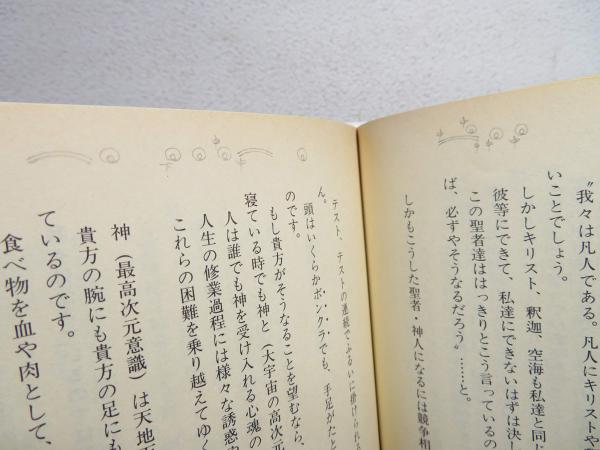 〝我々は凡人である。凡人にキリストや
いことでしょう。
しかしキリスト、釈迦、空海も私達と同じ
彼等にできて、私達にできないはずは決し
この聖者達ははっきりとこう言っているの
ば、必ずやそうなるだろう〟……と。
しかもこうした聖者・神人になるには競争相
テスト、テストの連続でふるいに掛けられる
ん。
頭はいくらかボンクラでも、手足がたと
のです。
もし貴方がそうなることを望むなら、
寝ている時でも神と（大宇宙の高次元
人は誰でも神を受け入れる心魂の
人生の修業過程には様々な誘惑や
これらの困難を乗り越えてゆく
神（最高次元意識）は天地
貴方の腕にも貴方の足にも
ているのです。
食べ物を血や肉として、